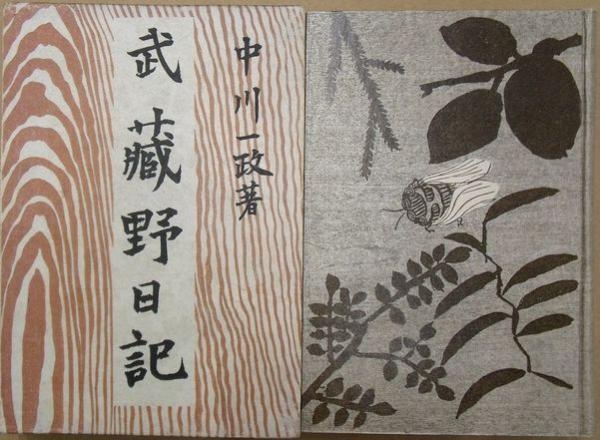 武藏野日記
中川一政著